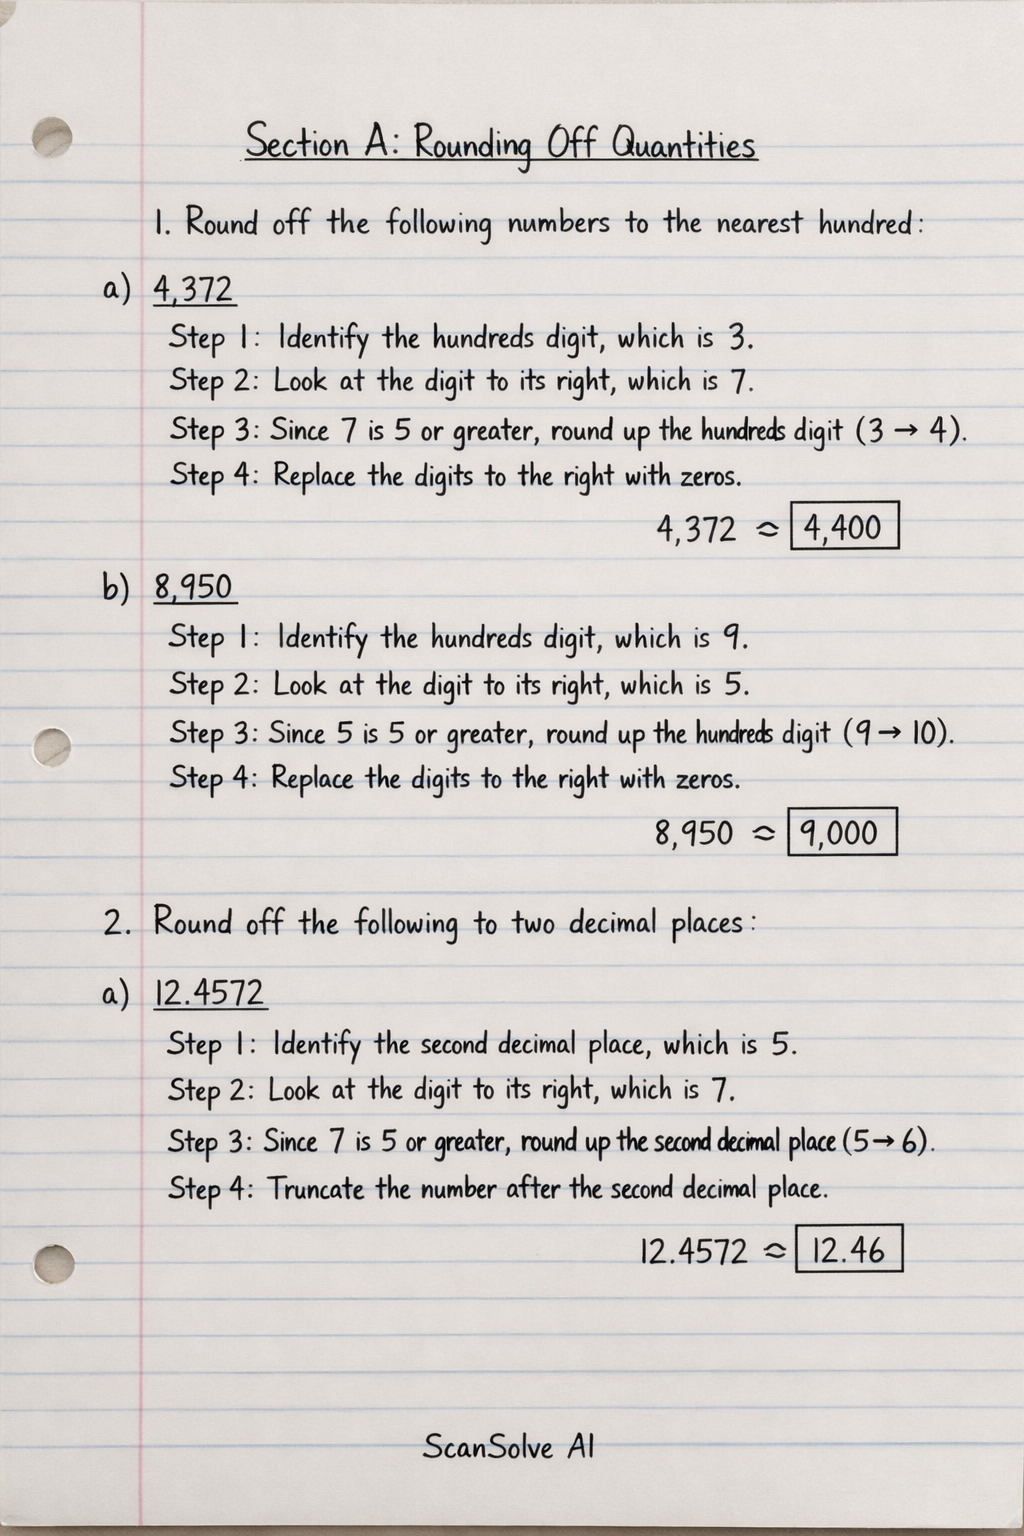 Section A: Rounding Off Quantities
1. Round off the following numbers to the nearest hundred:
a) 4,372
Step 1: Identify the hundreds digit, which is 3.
Step 2: Look at the digit to its right, which is 7.
Step 3: Since 7 is 5 or greater, round up the hundreds digit (3 → 4).
Step 4: Replace the digits to the right with zeros.
4,372 ≈ 4,400
b) 8,950
Step 1: Identify the hundreds digit, which is 9.
Step 2: Look at the digit to its right, which is 5.
Step 3: Since 5 is 5 or greater, round up the hundreds digit (9 → 10).
Step 4: Replace the digits to the right with zeros.
8,950 ≈ 9,000
2. Round off the following to two decimal places:
a) 12.4572
Step 1: Identify the second decimal place, which is 5.
Step 2: Look at the digit to its right, which is 7.
Step 3: Since 7 is 5 or greater, round up the second decimal place (5 → 6).
Step 4: Truncate the number after the second decimal place.
12.4572 ≈ 12.46
ScanSolve AI